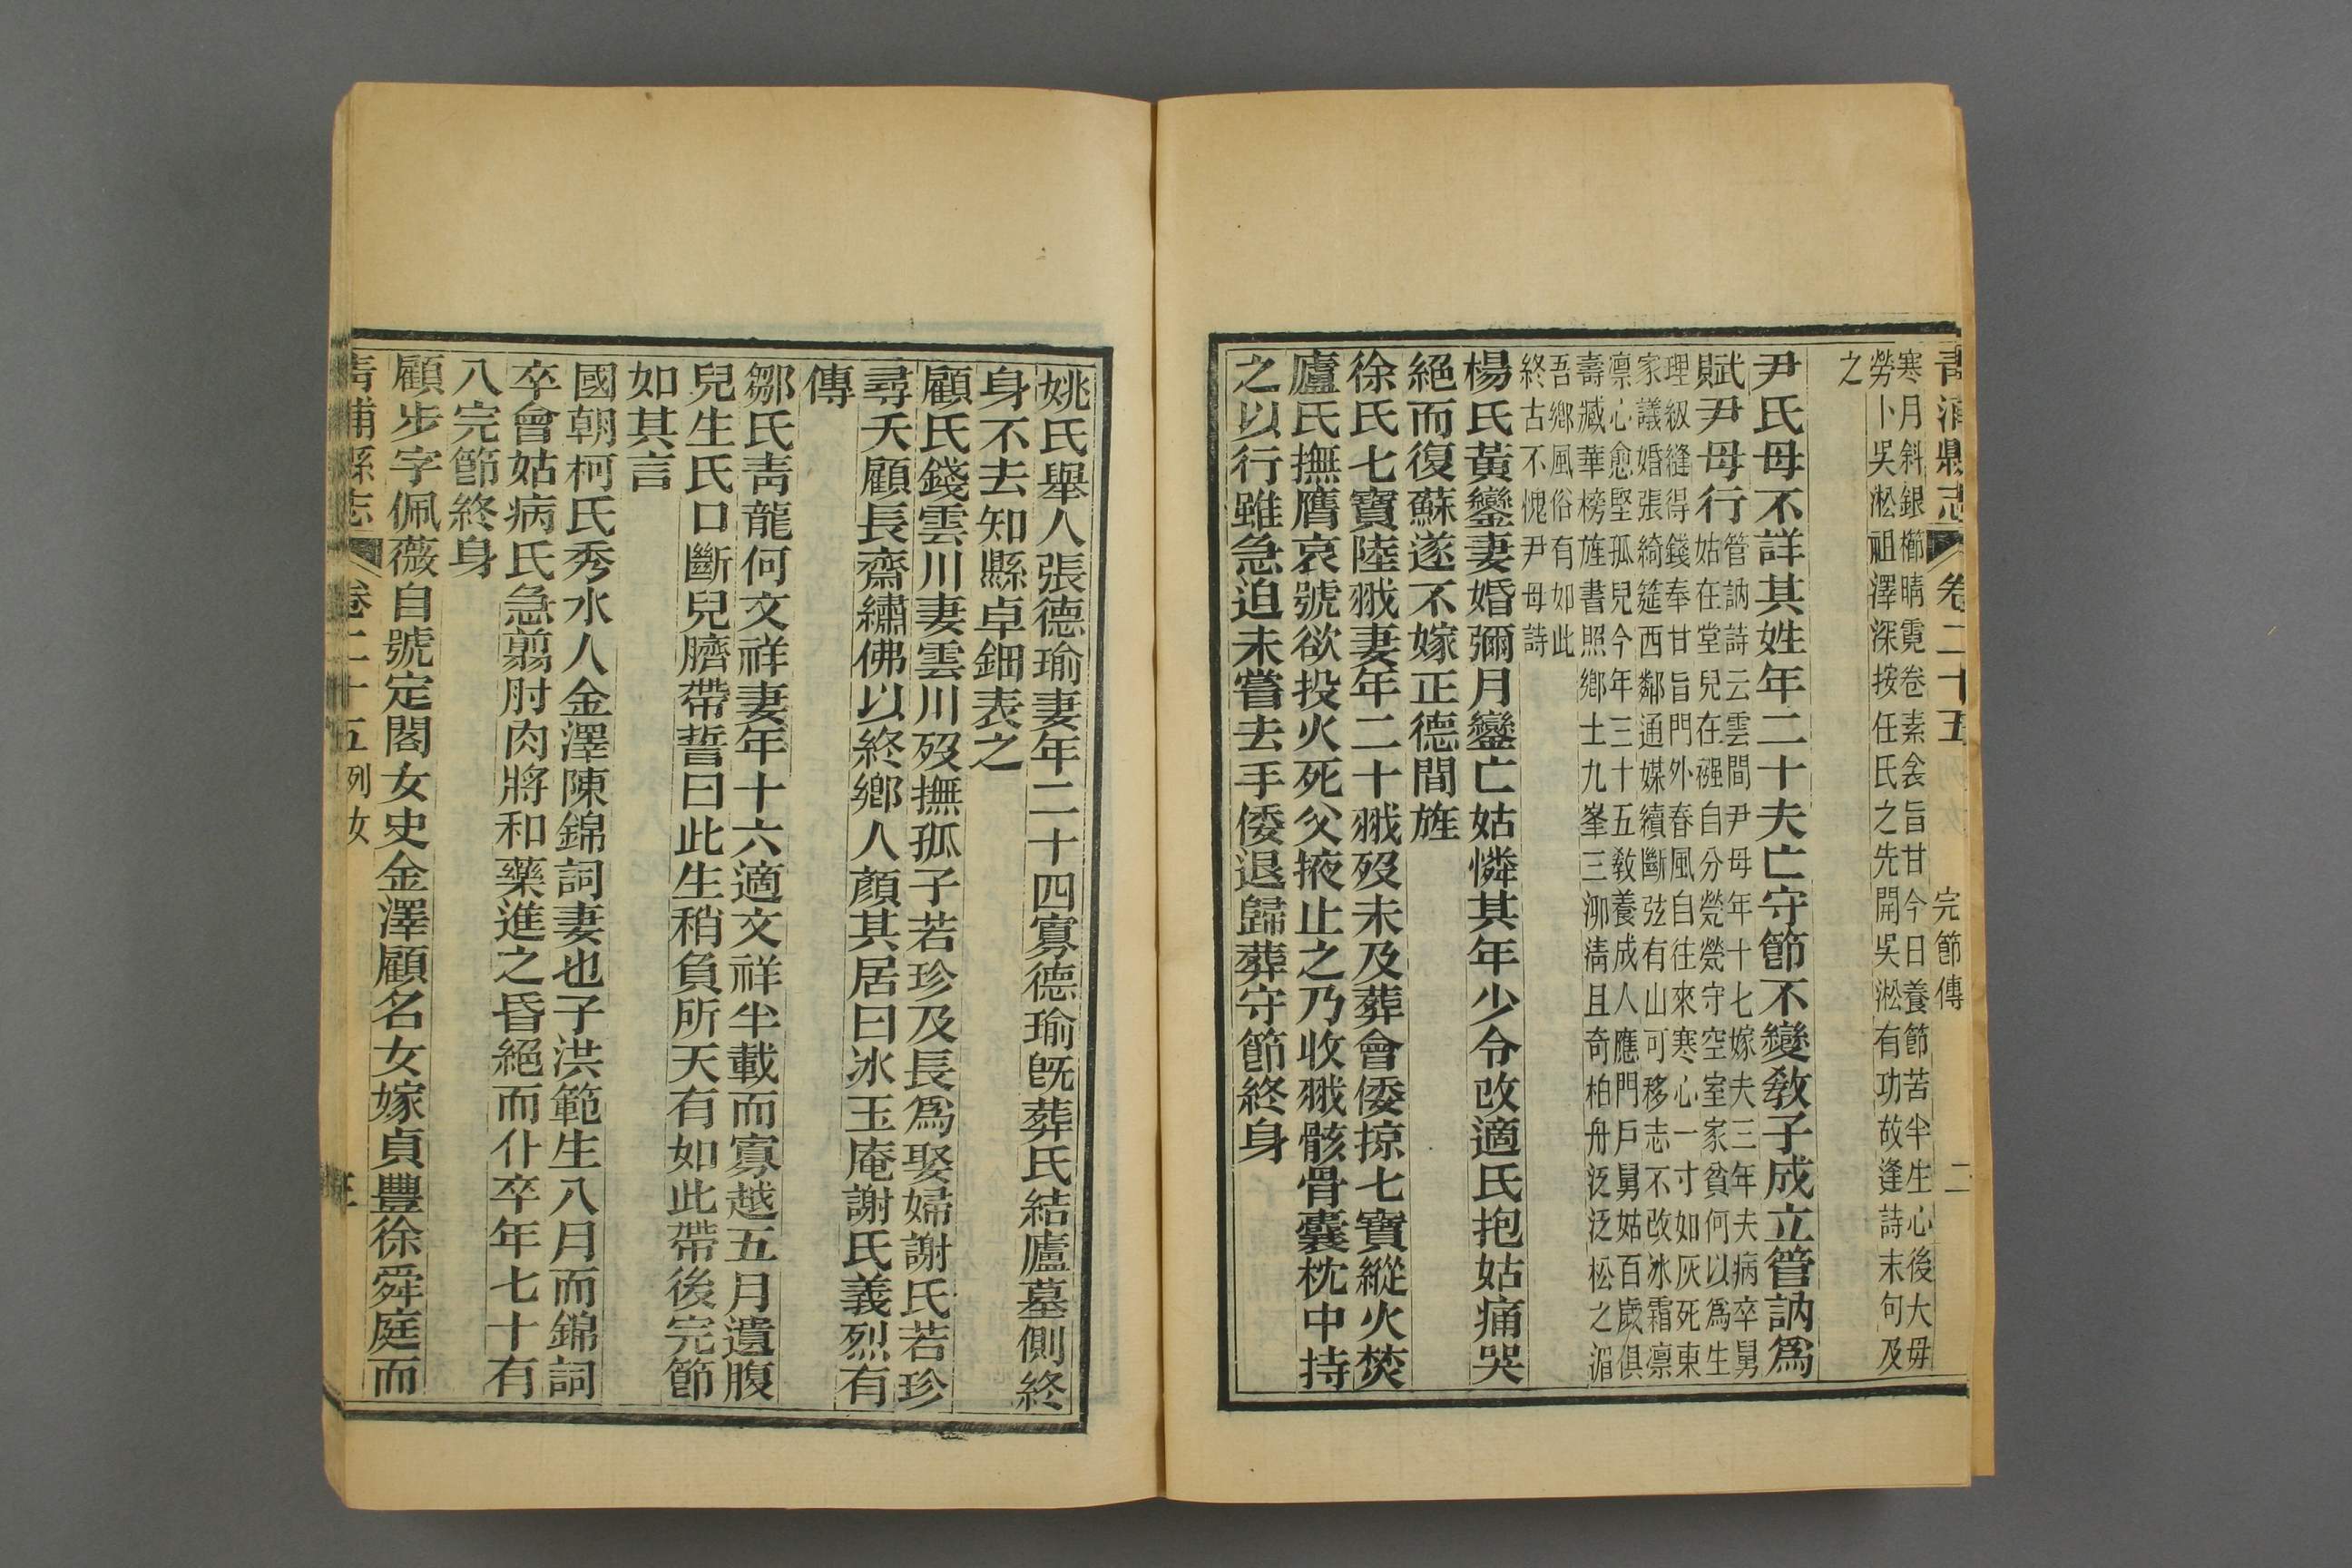 青浦縣志 卷二十五 完節傳 二
寒月斜銀櫛晴霓卷素衾旨甘今日養節苦半生心後大毋
勞卜吳淞祖澤深按任氏之先開吳淞有功故逢詩末句及
之
尹氏母不詳其姓年二十夫亡守節不變敎子成立管訥爲
賦尹母行
管訥詩云雲間尹母年十七嫁夫三年夫病卒舅
姑在堂兒在襁自分煢煢守空室家貧何以爲生
理紉縫得錢奉甘旨門外春風自往來寒心一寸如灰死東
家議婚張綺筵西鄰通媒續斷弦有山可移志不改冰霜凛
凛心愈堅孤兒今年三十五敎養成人應門戶舅姑百歲俱
壽臧華榜旌書照鄉士九峯三泖淸且奇柏舟泛泛松之湄
吾鄉風俗有如此
終古不愧尹母詩
楊氏黃鑾妻婚彌月鑾亡姑憐其年少令改適氏抱姑痛哭
絕而復蘇遂不嫁正德間旌
徐氏七寶陸戣妻年二十戣歿未及葬會倭掠七寶縱火焚
廬氏撫膺哀號欲投火死父掖止之乃收戣骸骨囊枕中持
之以行雖急迫未嘗去手倭退歸葬守節終身
姚氏舉人張德瑜妻年二十四寡德瑜旣葬氏結廬墓側終
身不去知縣卓鈿表之
顧氏錢雲川妻雲川歿撫孤子若珍及長爲娶婦謝氏若珍
尋夭顧長齋繡佛以終鄉人顏其居曰冰玉庵謝氏義烈有
傳
鄒氏靑龍何文祥妻年十六適文祥半載而寡越五月遺腹
兒生氏口斷兒臍帶誓曰此生稍負所天有如此帶後完節
如其言
國朝柯氏秀水人金澤陳錦詞妻也子洪範生八月而錦詞
卒會姑病氏急翦肘肉將和藥進之昏絕而仆卒年七十有
八完節終身
顧步字佩薇自號定閣女史金澤顧名女嫁貞豐徐舜庭而
靑浦縣志 卷二十五 列女 三